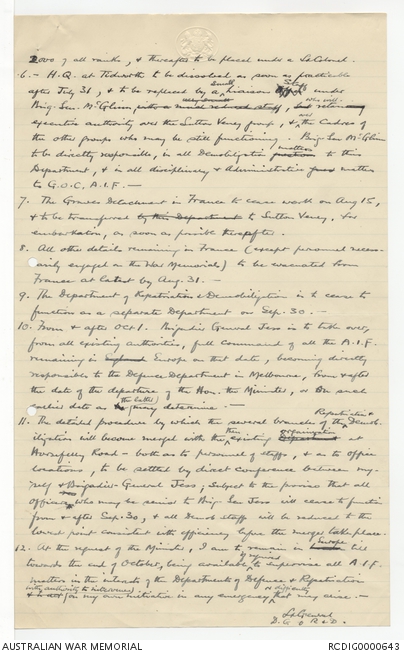 2000 of all ranks, & thereafter to be placed under a Lt Colonel.
6. - H.Q. at Tidworth to be dissolved as soon as practicable
after July 31, & to be replaced by a small liaison Staff under
Brig-Gen. McGlinn with a small reduced staff, who will retain
executive authority over the Sutton Veney group, & over the Cadres of
the other groups who may be still functioning. Brig-Gen McGlinn
to be directly responsible, in all Demobilization matters to this
Department, & in all disciplinary & Administrative matters
to G.O.C. A.I.F. -
7. The Graves Detachment in France to cease work on Aug 15,
& to be transferred by this Department to Sutton Veney, for
embarkation, as soon as possible thereafter.
8. All other details remaining in France (except personnel neces-
sarily engaged on the War Memorials) to be evacuated from
France at latest by Aug. 31. -
9. The Department of Repatriation & Demobilization is to cease to
function as a separate Department on Sep. 30. -
10. From & after Oct 1. Brigadier General Jess is to take over,
from all existing authorities, full command of all the A.I.F.
remaining in England Europe on that date, becoming directly
responsible to the Defence Department in Melbourne, from & after
the date of the departure of the Hon. the Minister, or on such
earlier date as he (the latter) may determine. -
11. The detailed procedure by which the several branches of the Repatriation & Demob-
ilization will become merged with the existing organization Department at
Horseferry Road - both as to personnel of staffs, & as to office
locations, to be settled by direct conference between my-
self & Brigadier-General Jess; subject to the proviso that all
officers who may be senior to Brig Gen Jess will cease to function
from & after Sep. 30, & all Demob staff will be reduced to the
lowest point consistent with efficiency before the merger takes place.
12. At the request of the Minister, I am to remain in Europe till
towards the end of October, being available, if required to supervise all A.I.F.
matters in the interests of the Departments of Defence & Repatriation
with authority to intervene on my own initiative in any emergency or difficulty that may arise. -
Lt General
D.G. of R & D.
AUSTRALIAN WAR MEMORIAL
RCDIG0000643